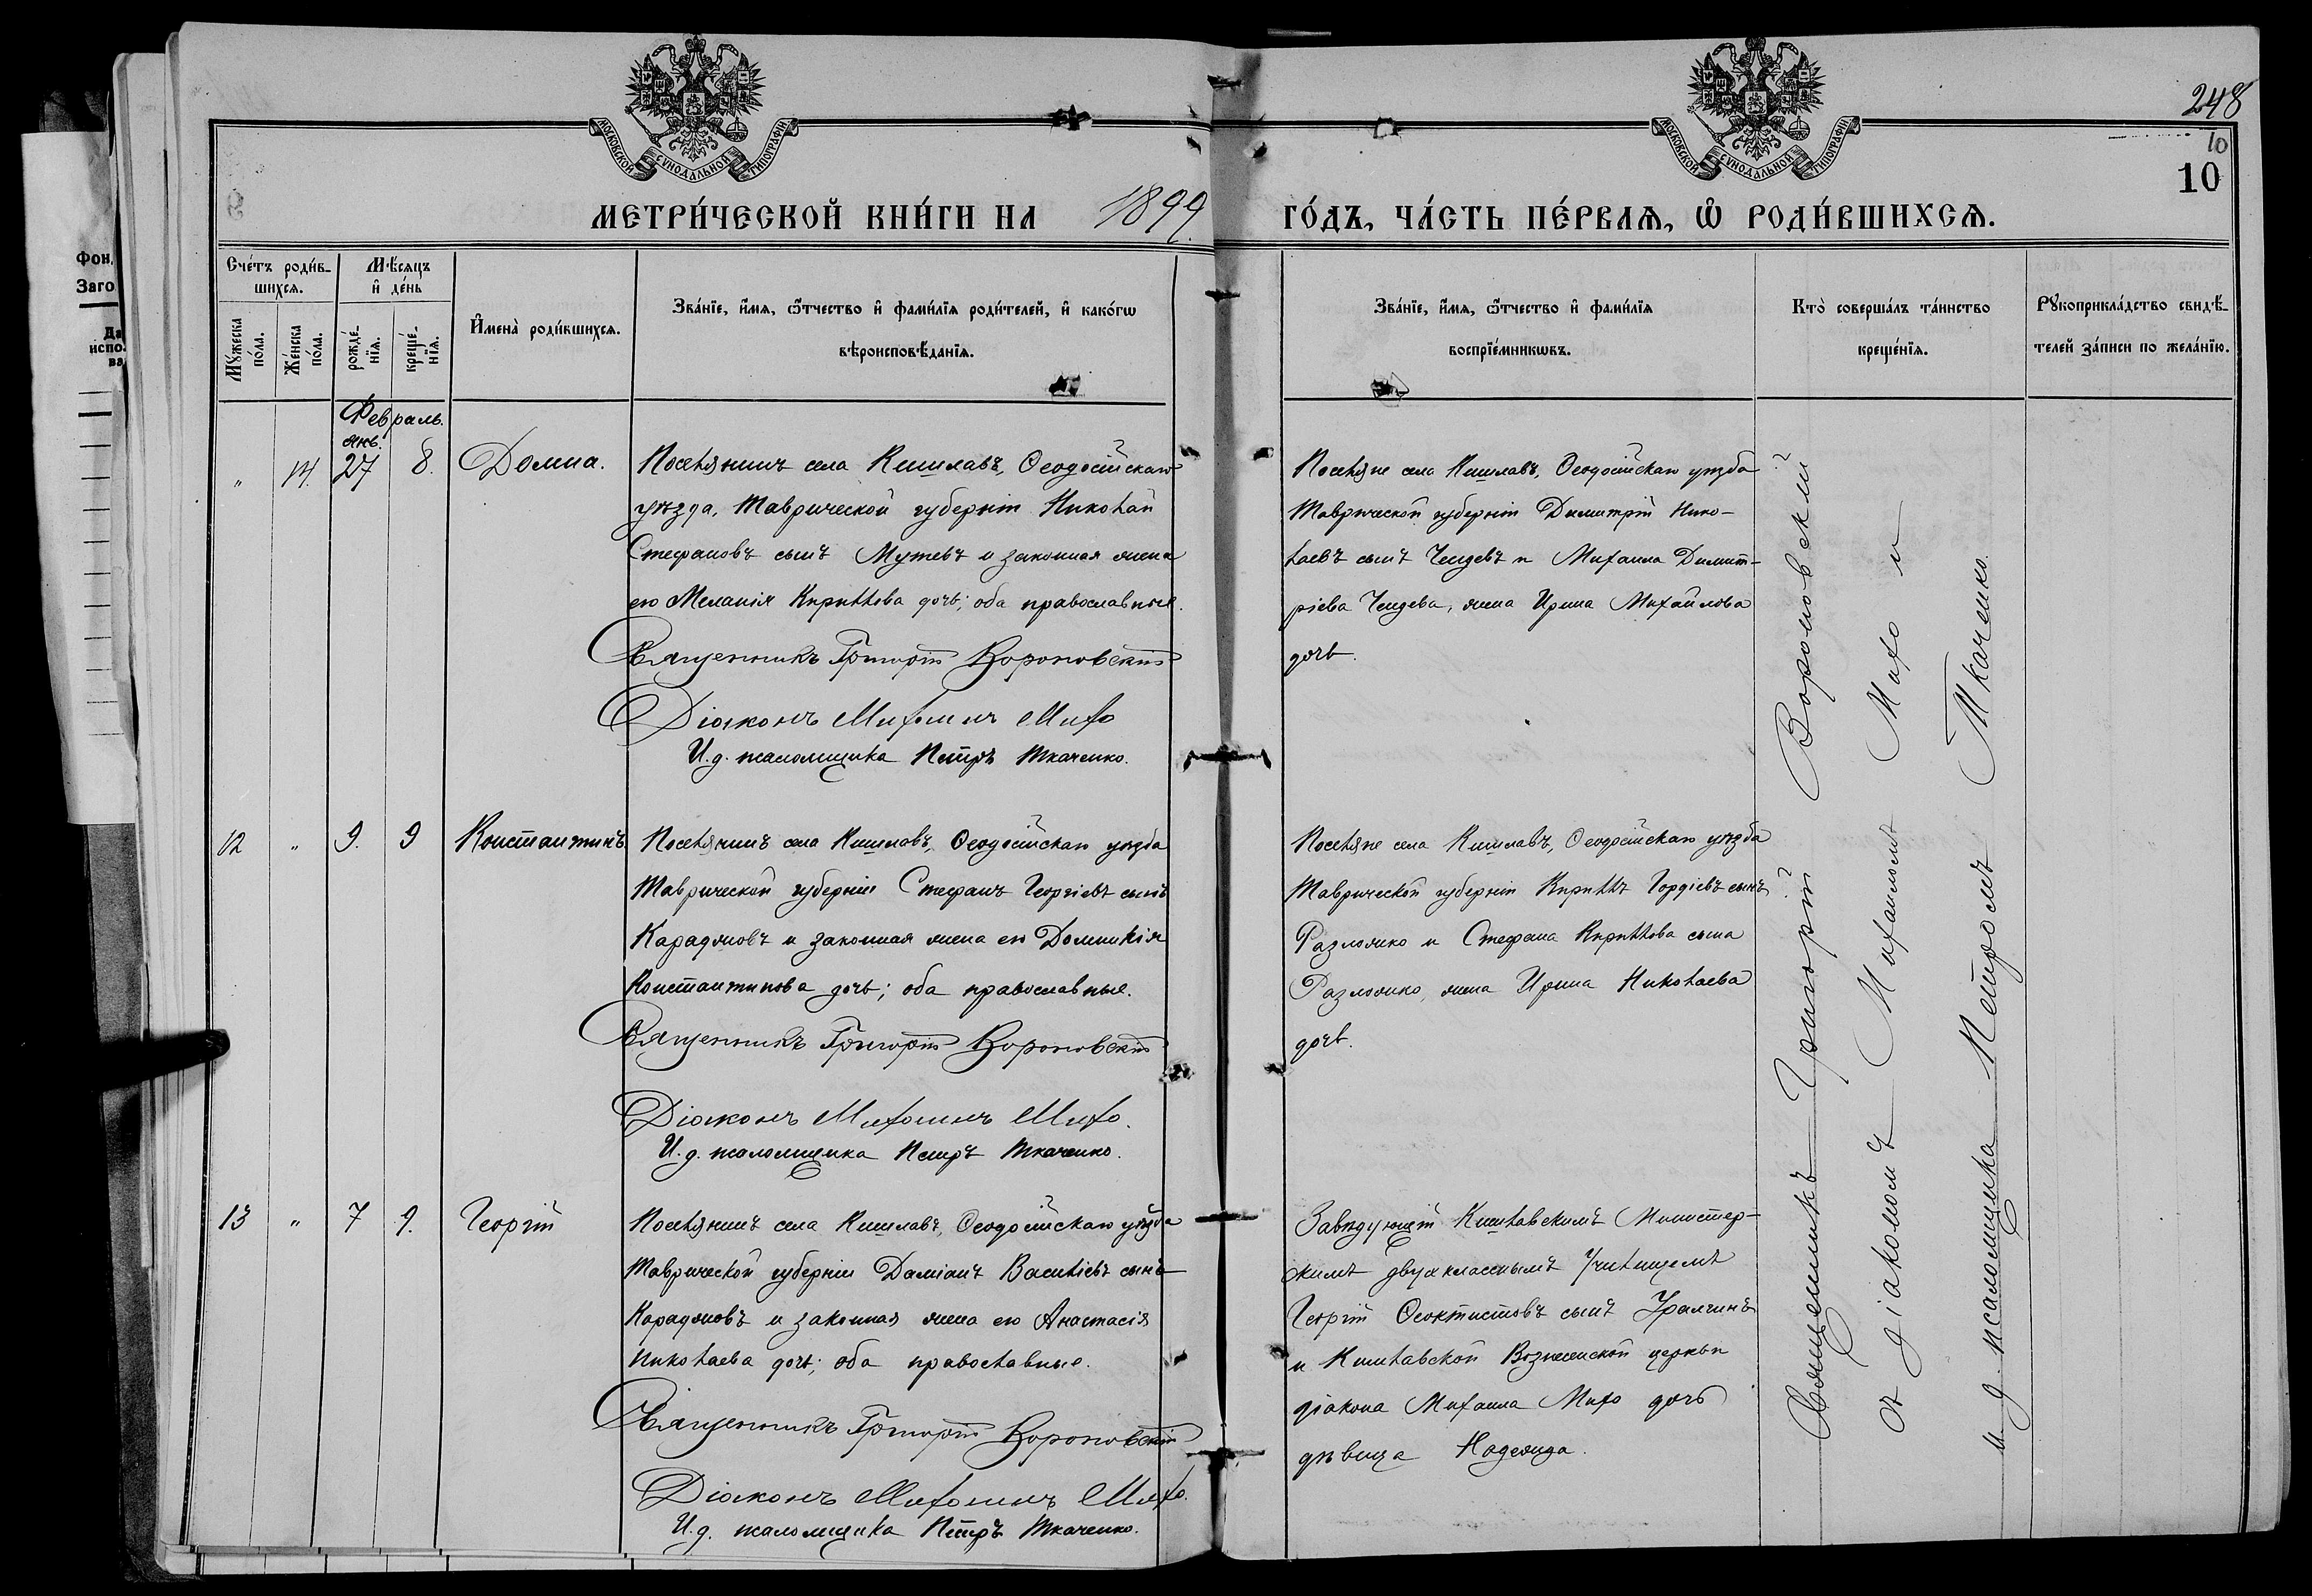 МОСКОВСКОЙ СѴНОДАЛЬНОЙ ТИПОГРАФІИ
МОСКОВСКОЙ СѴНОДАЛЬНОЙ ТИПОГРАФІИ
248
10
10
МЕТРИ́ЧЕСКОЙ КНИ́ГИ НА 1899
ГО́ДЪ, ЧА́СТЬ ПЕ́РВАѦ, Ѡ РОДИ́ВШИХСѦ.
Фон,
Заго
Да
испо
ва
Сче́тъ роди́в-
шихсѧ.
Мꙋ́жеска по́ла.
Же́нска по́ла.
Мѣ́сяцъ и де́нь
рожде́-нїѧ.
креще́-нїѧ.
Имена̀ роди́вшихсѧ.
Зва́нїе, и́мѧ, ѻ́тчество и фами́лїѧ роди́телей, и како́гѡ
вѣроисповѣ́данїѧ.
Зва́нїе, и́мѧ, ѻ́тчество и фами́лїѧ
воспрїе́мникѡвъ.
Кто̀ соверша́лъ та́инство
креще́нїѧ.
Рꙋкоприкла́дство свидѣ́-
телей за́писи по жела́нїю.
Февраль.
Янв.
" 14. 27 8. Домна.
Поселянинъ села Кишлавъ, Ѳеодосійскаго
уѣзда, Таврической губерніи Николай
Стефановъ сынъ Мутевъ и законная жена
его Меланія Кириллова дочь; оба православные.
Священникъ Григорій Вороновскій
Діаконъ Михаилъ Михо
И. д. псаломщика Петръ Ткаченко.
Поселяне села Кишлавъ, Ѳеодосійскаго уѣзда
Таврической губерніи Димитрій Нико-
лаевъ сынъ Чендевъ и Михаила Димит-
ріева Чендева, жена Ирина Михайлова
дочь.
12 " 9. 9 Константинъ
Поселянинъ села Кишлавъ, Ѳеодосійскаго уѣзда
Таврической губерніи Стефанъ Георгіевъ сынъ
Караджовъ и законная жена его Домникія
Константинова дочь; оба православные.
Священникъ Григорій Вороновскій
Діаконъ Михаилъ Михо.
И. д. псаломщика Петръ Ткаченко.
Поселяне села Кишлавъ, Ѳеодосійскаго уѣзда
Таврической губерніи Кириллъ Гордіевъ сынъ
Разложко и Стефана Кириллова сына
Разложко, жена Ирина Николаева
дочь.
13 " 7 9. Георгій
Поселянинъ села Кишлавъ, Ѳеодосійскаго уѣзда
Таврической губерніи Даміанъ Васильевъ сынъ
Караджовъ и законная жена его Анастасія
Николаева дочь; оба православные.
Священникъ Григорій Вороновскій
Діаконъ Михаилъ Михо.
И. д. псаломщика Петръ Ткаченко.
Завѣдующій Кишлавскимъ Министер-
скимъ двухкласснымъ Училищемъ
Георгій Ѳеоктистовъ сынъ
и Кишлавской Вознесенской церкви
діакона Михаила Михо дочь
дѣвица Надежда.
Священникъ Григорій Вороновскій
съ діакономъ Михаиломъ Михо и
и. д. псаломщика Петромъ Ткаченко.